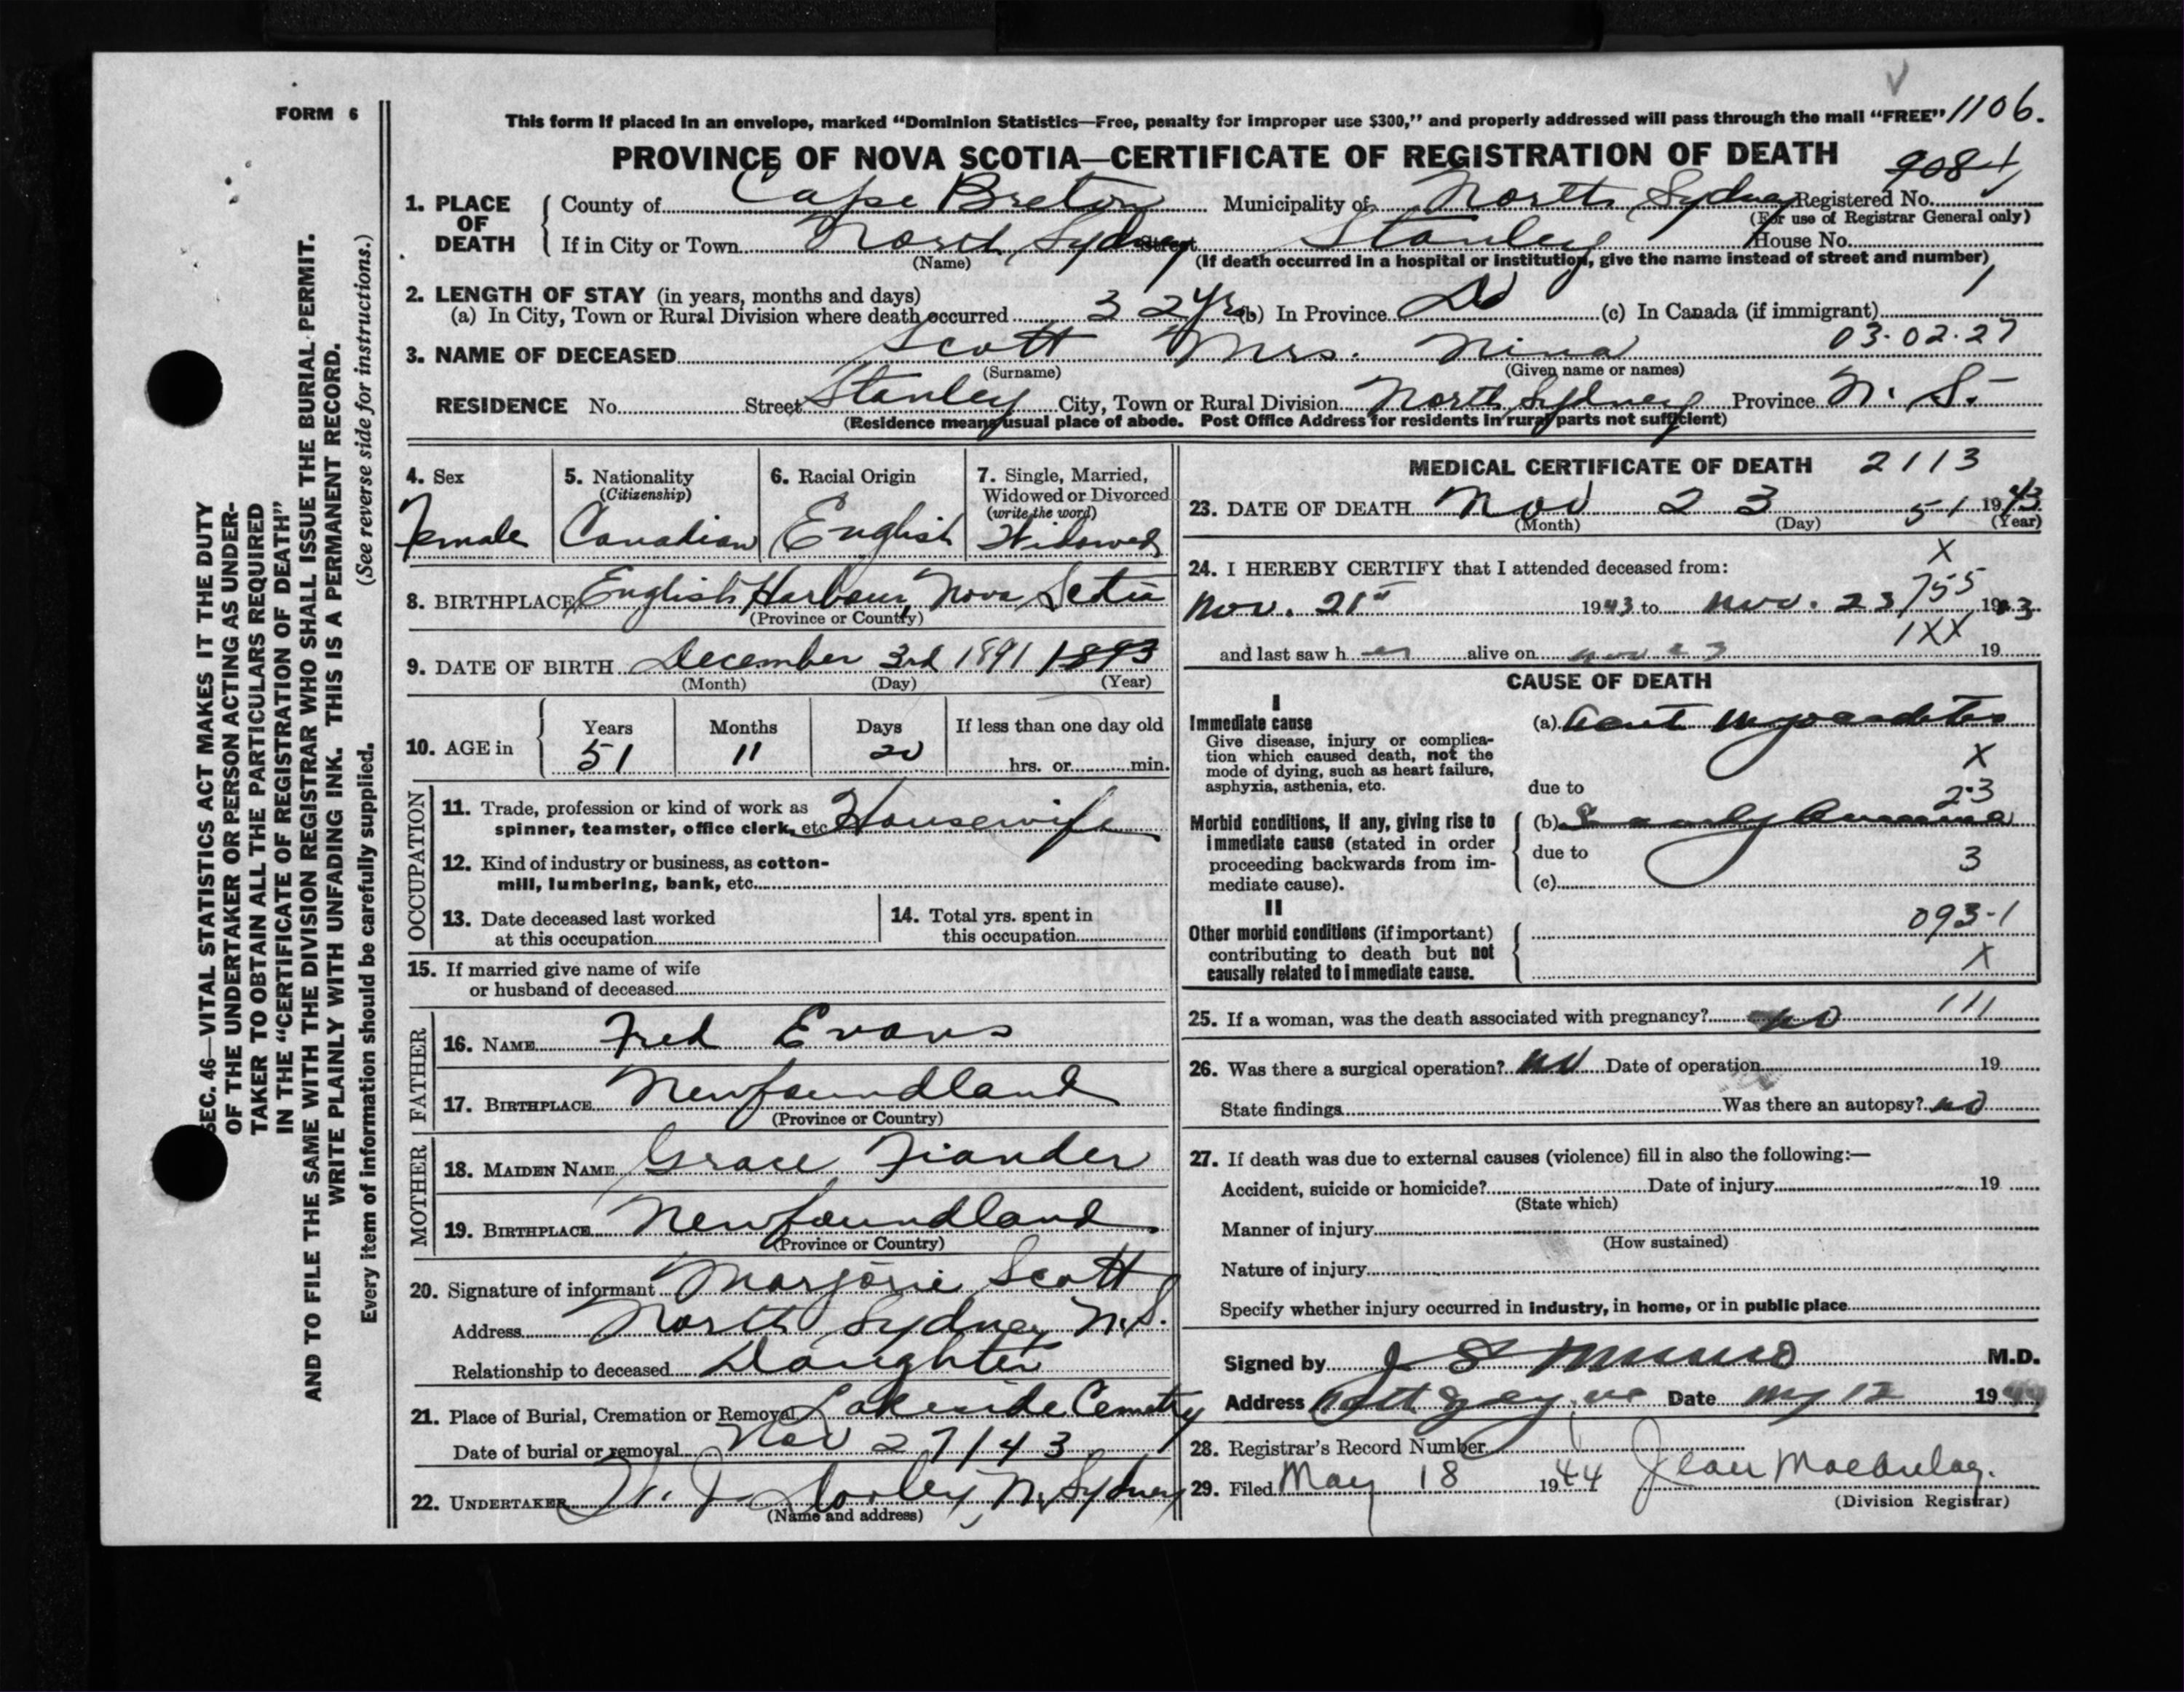 FORM 6
This form if placed in an envelope, marked "Dominion Statistics—Free, penalty for improper use $300," and properly addressed will pass through the mail "FREE" 1106.
PROVINCE OF NOVA SCOTIA—CERTIFICATE OF REGISTRATION OF DEATH
9084
1. PLACE OF DEATH
County of Cape Breton Municipality of North Sydney Registered No.
(For use of Registrar General only)
If in City or Town North Sydney Street Stanley House No.
(Name) (If death occurred in a hospital or institution, give the name instead of street and number)
2. LENGTH OF STAY (in years, months and days) 1
(a) In City, Town or Rural Division where death occurred 32 yrs (b) In Province Do (c) In Canada (if immigrant)
3. NAME OF DECEASED Scott Mrs. Nina 03-02-27
(Surname) (Given name or names)
RESIDENCE No. Street Stanley City, Town or Rural Division North Sydney Province N. S.
(Residence means usual place of abode. Post Office Address for residents in rural parts not sufficient)
4. Sex
Female
5. Nationality
(Citizenship)
Canadian
6. Racial Origin
English
7. Single, Married,
Widowed or Divorced
(write the word)
Widowed
8. BIRTHPLACE English Harbour, Nova Scotia
(Province or Country)
9. DATE OF BIRTH December 3rd 1891 1893
(Month) (Day) (Year)
10. AGE in
Years Months Days If less than one day old
51 11 20 hrs. or min.
OCCUPATION
11. Trade, profession or kind of work as
spinner, teamster, office clerk, etc. Housewife
12. Kind of industry or business, as cotton-
mill, lumbering, bank, etc.
13. Date deceased last worked
at this occupation
14. Total yrs. spent in
this occupation
15. If married give name of wife
or husband of deceased
FATHER
16. NAME Fred Evans
17. BIRTHPLACE Newfoundland
(Province or Country)
MOTHER
18. MAIDEN NAME Grace Fiander
19. BIRTHPLACE Newfoundland
(Province or Country)
20. Signature of informant Marjorie Scott
Address North Sydney N.S.
Relationship to deceased Daughter
21. Place of Burial, Cremation or Removal Lakeside Cemetry
Date of burial or removal Nov 27/43
22. UNDERTAKER W. J. Dooley, N. Sydney
(Name and address)
MEDICAL CERTIFICATE OF DEATH 2113
23. DATE OF DEATH Nov 23 51 1943
(Month) (Day) (Year)
X
24. I HEREBY CERTIFY that I attended deceased from:
755
Nov. 21st 1943 to Nov. 23 1943
1XX
and last saw her alive on Nov 23 19
CAUSE OF DEATH
I
Immediate cause
Give disease, injury or complica-
tion which caused death, not the
mode of dying, such as heart failure,
asphyxia, asthenia, etc.
(a)
X
due to
23
Morbid conditions, if any, giving rise to
immediate cause (stated in order
proceeding backwards from im-
mediate cause).
(b)
due to
3
(c)
II
Other morbid conditions (if important)
contributing to death but not
causally related to immediate cause.
093-1
X
25. If a woman, was the death associated with pregnancy? no 111
26. Was there a surgical operation? no Date of operation 19
State findings Was there an autopsy? no
27. If death was due to external causes (violence) fill in also the following:—
Accident, suicide or homicide? Date of injury 19
(State which)
Manner of injury
(How sustained)
Nature of injury
Specify whether injury occurred in industry, in home, or in public place
Signed by J S Munro M.D.
Address Date May 12 1944
28. Registrar's Record Number
29. Filed May 18 1944 Jean
(Division Registrar)
SEC. 46—VITAL STATISTICS ACT MAKES IT THE DUTY
OF THE UNDERTAKER OR PERSON ACTING AS UNDER-
TAKER TO OBTAIN ALL THE PARTICULARS REQUIRED
IN THE "CERTIFICATE OF REGISTRATION OF DEATH"
AND TO FILE THE SAME WITH THE DIVISION REGISTRAR WHO SHALL ISSUE THE BURIAL PERMIT.
WRITE PLAINLY WITH UNFADING INK. THIS IS A PERMANENT RECORD.
Every item of information should be carefully supplied. (See reverse side for instructions.)